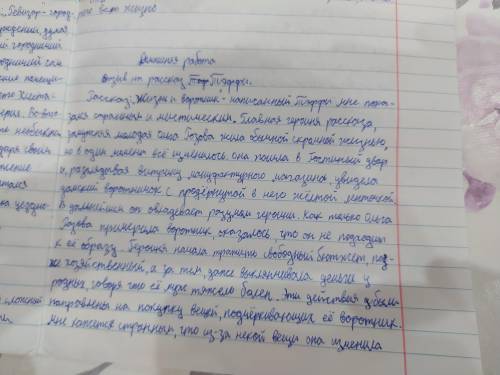 „Ревизор"- город,
городничий
Домашняя работа
Отзыв на рассказ Тэффи.
Рассказ „Жизнь и воротник", написанный Тэффи мне пока-
зался странным и мистическим. Главная героиня рассказа,
замужняя молодая Ольга Розова жила обычной скромной жизнью,
но в один момент всё изменилось она пошла в Гостиный двор
и, разглядывая витрину мануфактурного магазина, увидела
дамский воротничок с продёрнутой в него жёлтой ленточкой.
В дальнейшем он овладевает разумом героини. Как только Ольга
Розова примерила воротник, оказалось, что он не подходит
к её образу. Героиня начала тратить свободный бюджет, поз-
же хозяйственный, а за тем, даже выклянчивала деньги у
родных, говоря что её муж тяжело болен. Эти действия были
направлены на покупку вещей, подчёркивающих её воротник.
Мне кажется странным, что из-за некой вещи она изменила